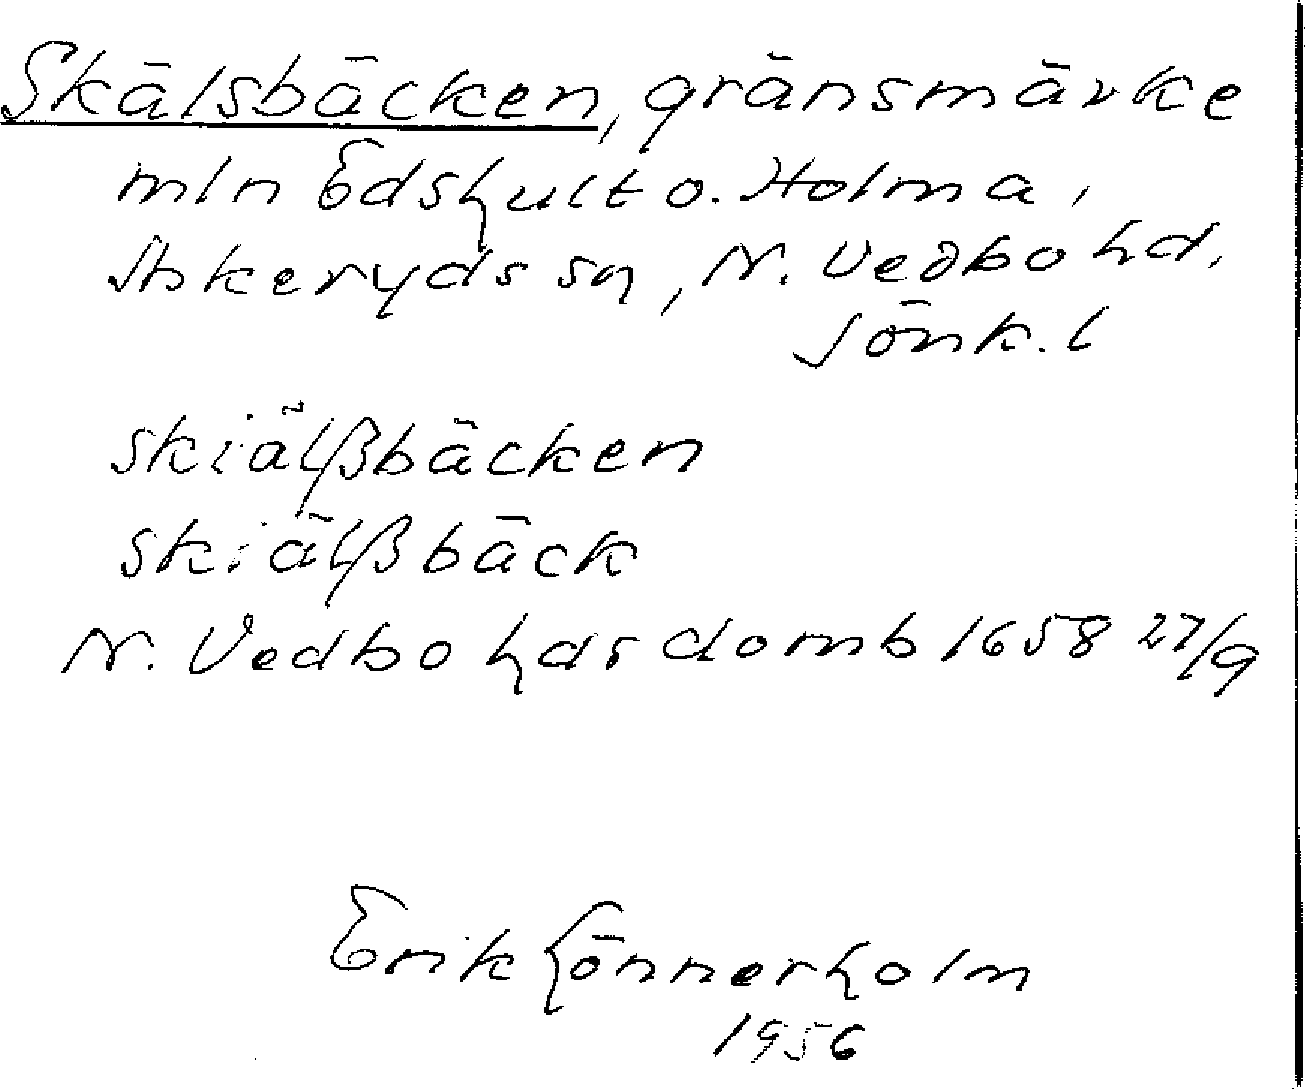 Skälsbäcken, gränsmärke
mln Edshult o. Holma,
Askeryds sn, N. Vedbo hd.
Jönk. l
skiälßbäcken
skiälßbäck
N. Vedbo hds domb 1658 27/9
Erik Lönnerholm
1956